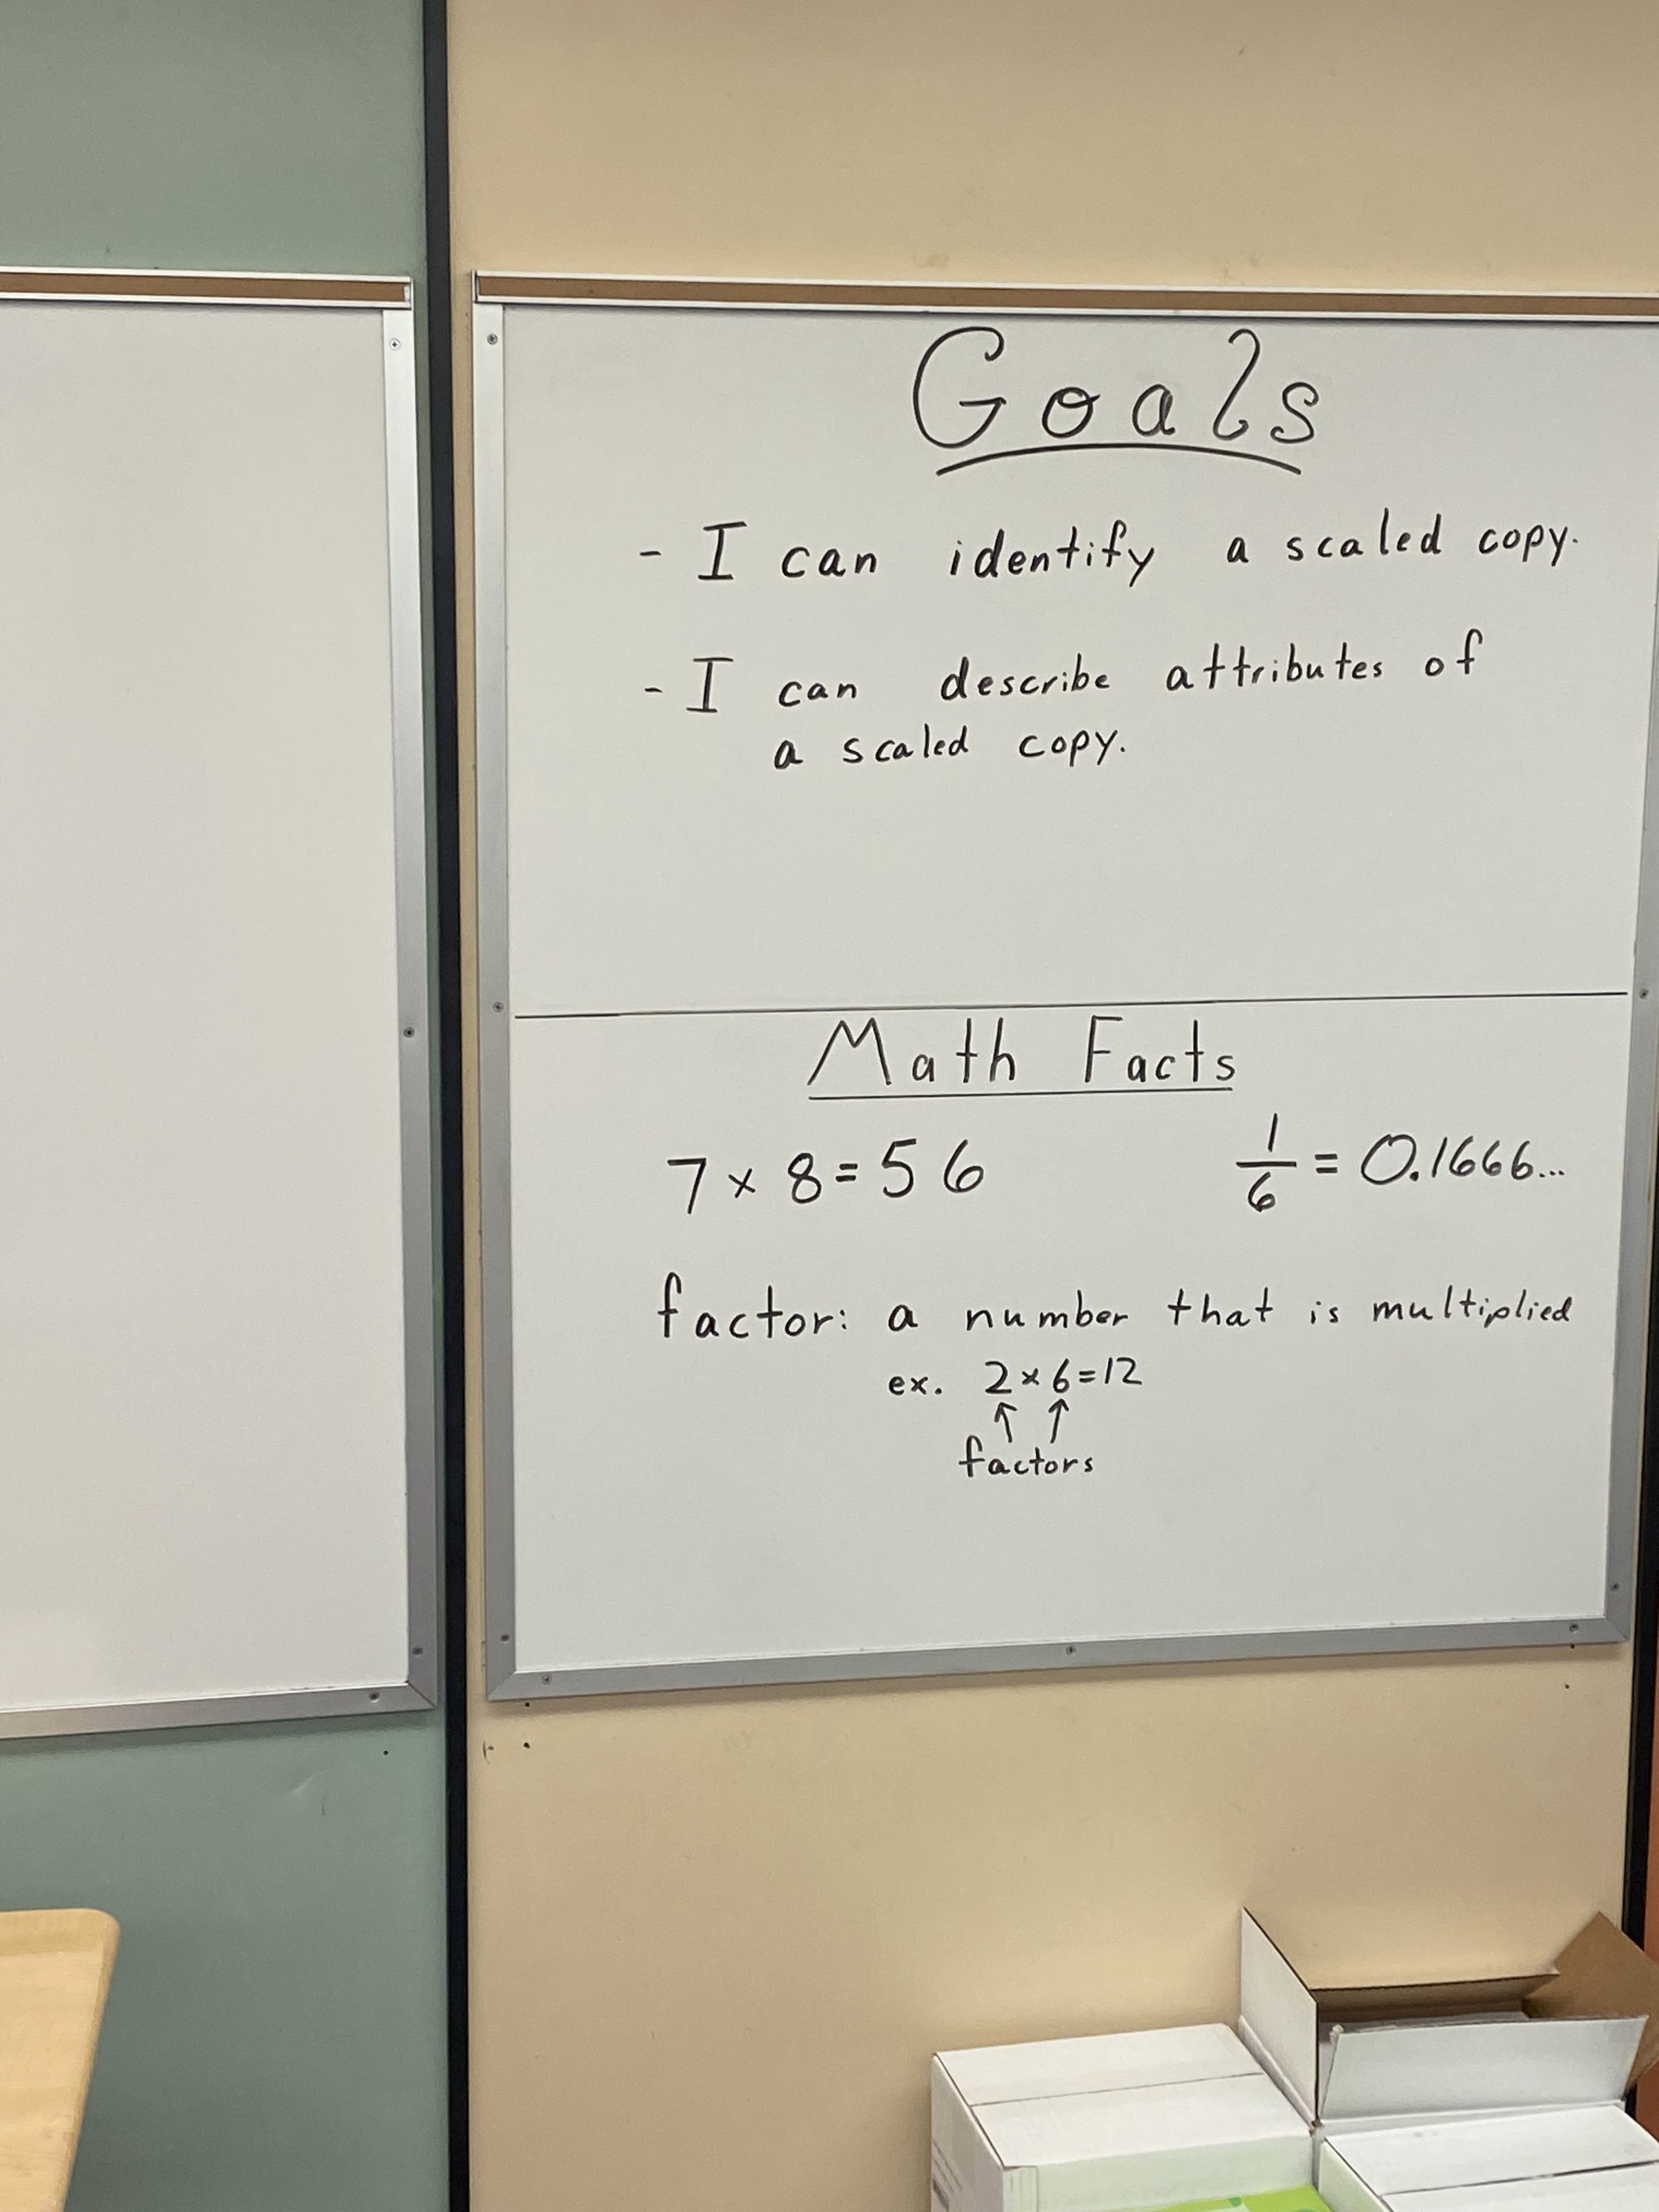 Goals
- I can identify a scaled copy.
- I can describe attributes of
a scaled copy.
Math Facts
7 x 8 = 56
1/6 = 0.1666...
factor: a number that is multiplied
ex. 2 x 6 = 12
↑ ↑
factors